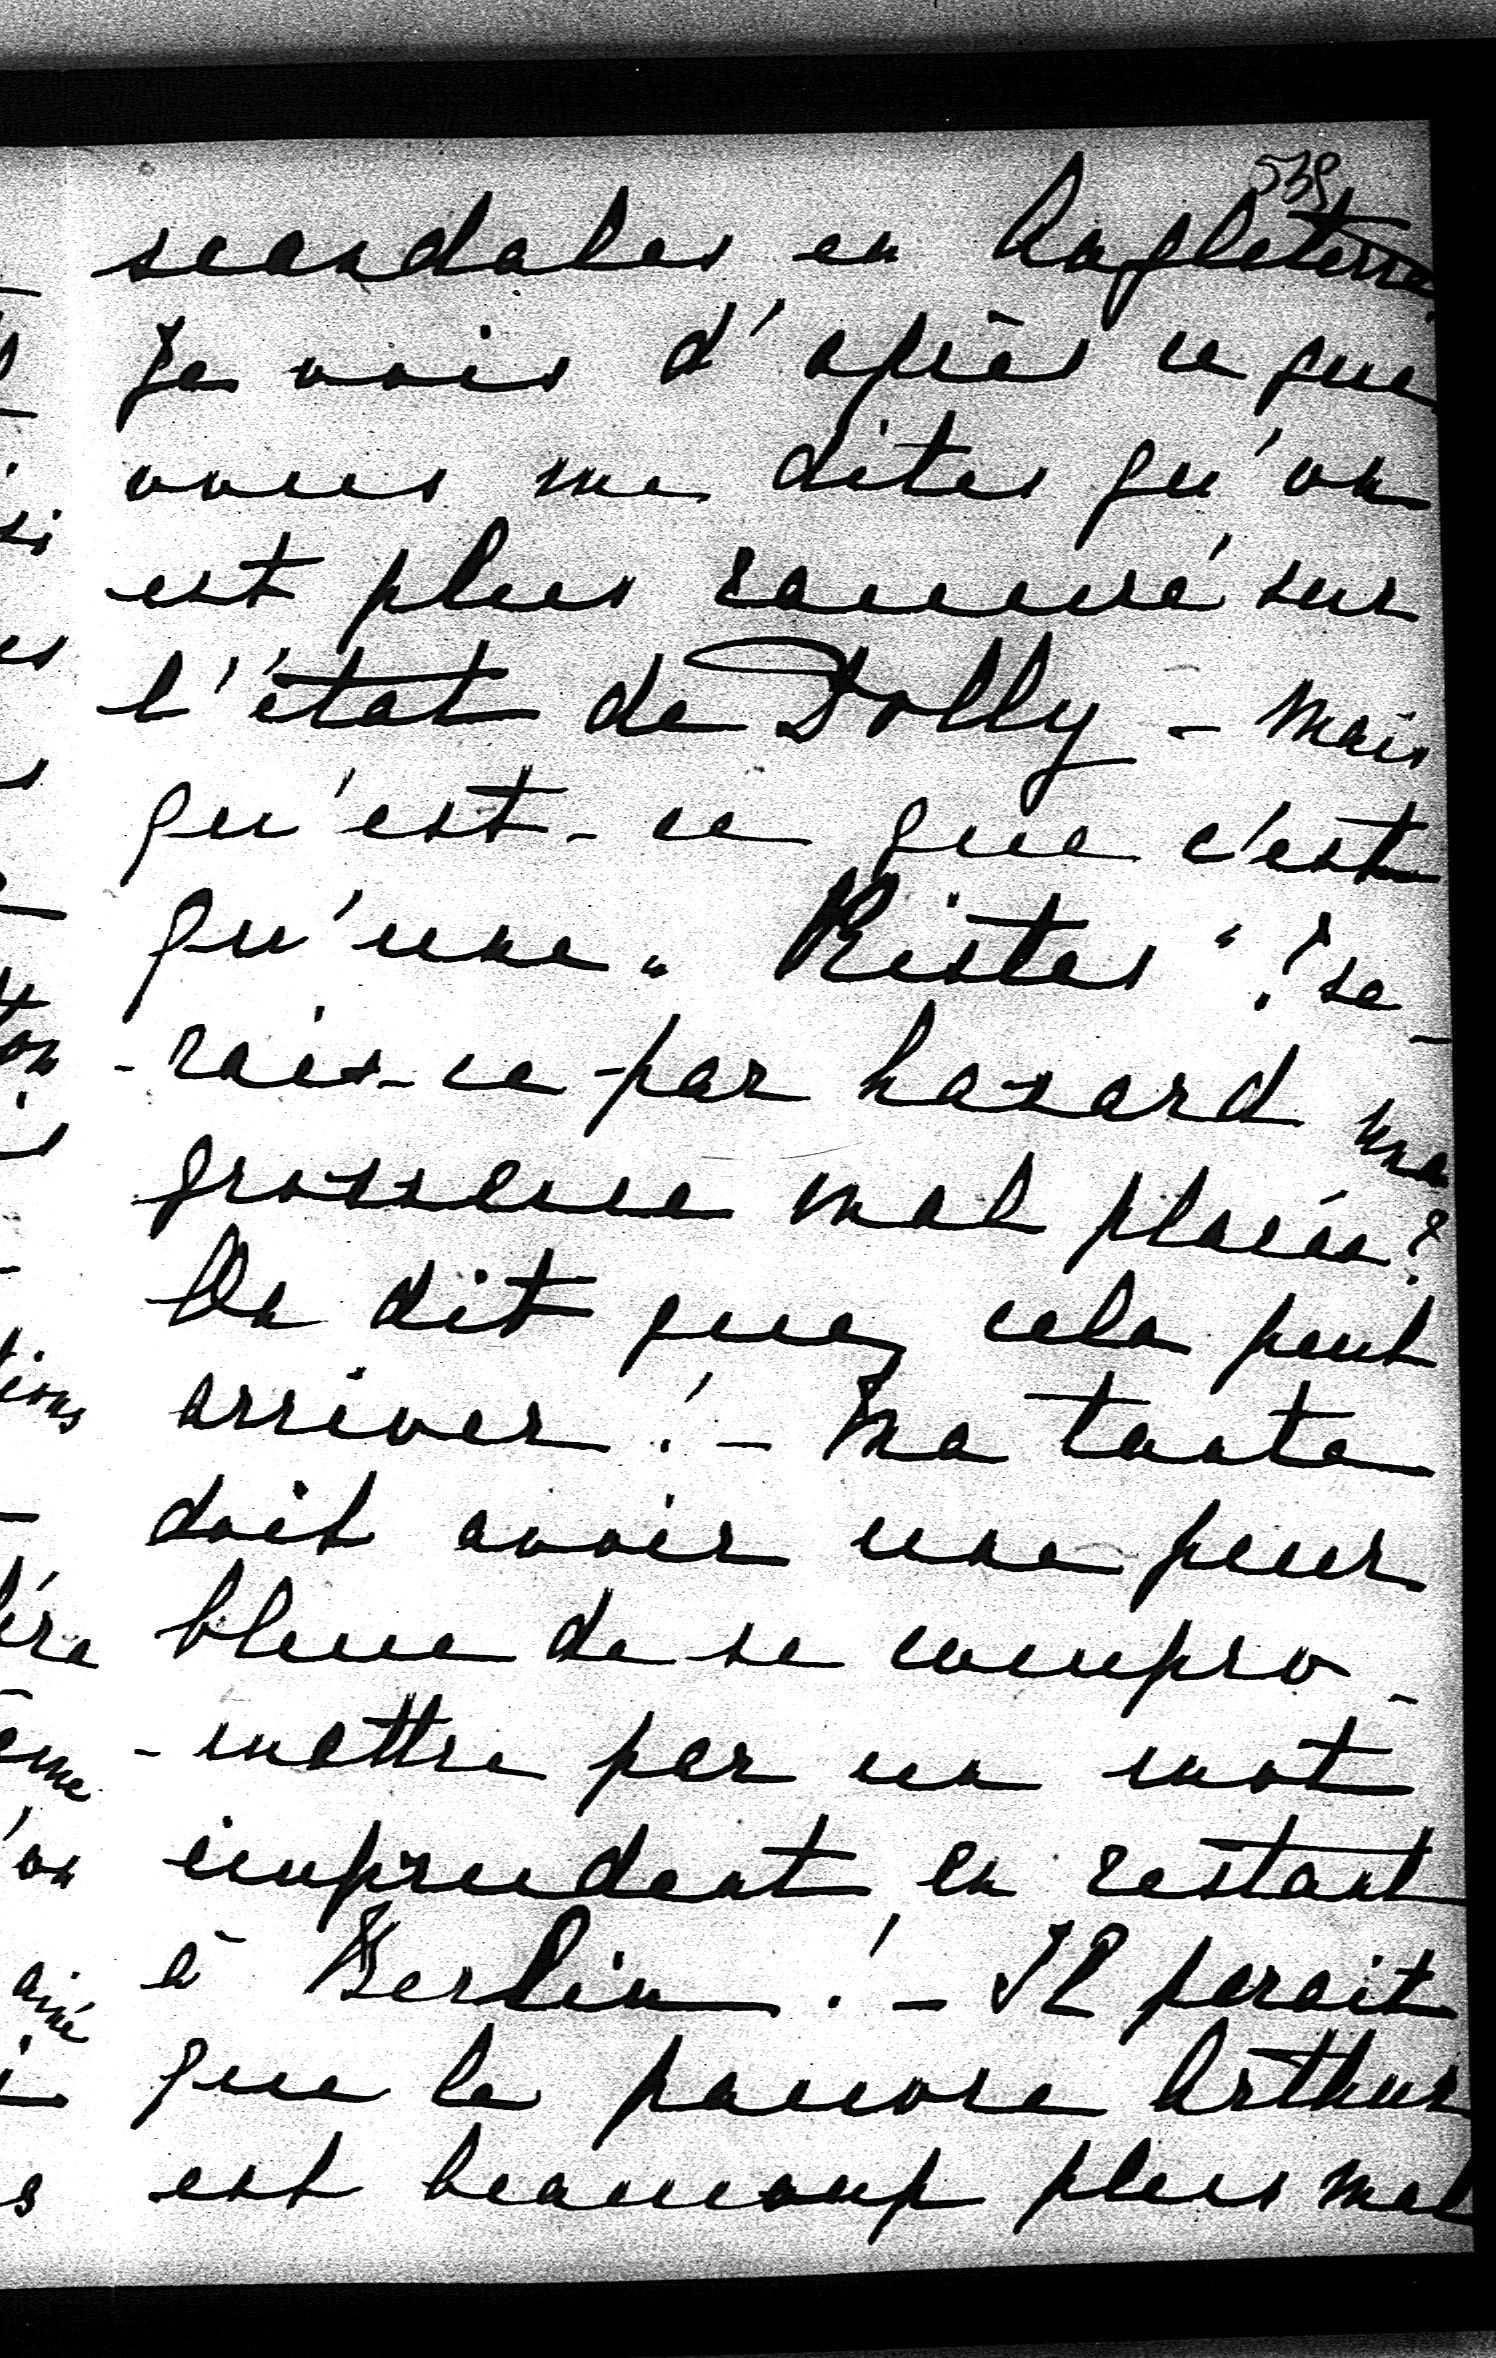 538
scandales en Angleterre.
Je vois d'après ce que
vous me dites qu'on
est plus rassuré sur
l'état de Dolly - Mais
qu'est-ce que c'est
qu'une „ Kistes “? se-
-rais-ce par hazard une
grossesse mal placée?
On dit que cela peut
arriver! - Ma tante
doit avoir une peur
bleue de se compro-
-mettre par un mot
imprudent en restant
à Berlin! - Il parait
que le pauvre Arthur
est beaucoup plus mal